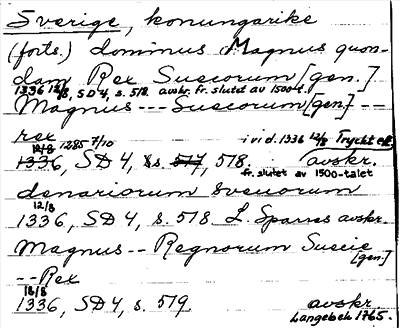 Sverige, konungarike
(forts.) dominus Magnus quon-
dam Rex Sueorum [gen.]
1336 12/8, SD 4, s. 518 avskr. fr. slutet av 1500-t.
Magnus --- Sueorum [gen.] --
rex 1285 7/10 i vid. 1336 12/8 Tryckt eft.
1336 12/8, SD 4, s. 517, 518. avskr.
fr. slutet av 1500-talet
denariorum sveuorum
12/8
1336, SD 4, s. 518 L. Sparres avskr.
Magnus -- Regnorum Sueie [gen.]
-- Rex
18/8
1336, SD 4, s. 519 avskr
Langebek 1765.